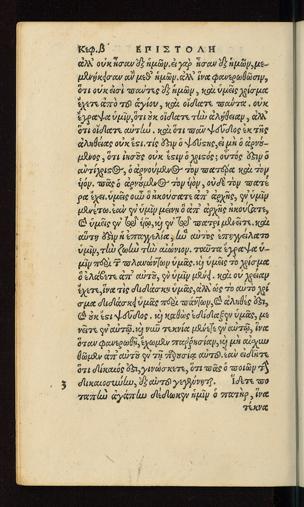 Κεφ. β ΕΠΙΣΤΟΛΗ
ἀλλ' οὐκ ἦσαν ἐξ ἡμῶν. εἰ γὰρ ἦσαν ἐξ ἡμῶν, με-
μενήκησαν ἂν μεθ' ἡμῶν. ἀλλ' ἵνα φανερωθῶσιν,
ὅτι οὐκ εἰσὶ πάντες ἐξ ἡμῶν, καὶ ὑμεῖς χρίσμα
ἔχετε ἀπὸ τοῦ ἁγίου, καὶ οἴδατε πάντα. οὐκ
ἔγραψα ὑμῖν, ὅτι οὐκ οἴδατε τὴν ἀλήθειαν, ἀλλ'
ὅτι οἴδατε αὐτὴν, καὶ ὅτι πᾶν ψεῦδος ἐκ τῆς
ἀληθείας οὐκ ἔστι. τίς ἐστιν ὁ ψεύστης, εἰ μὴ ὁ ἀρνού-
μενος, ὅτι ἰησοῦς οὐκ ἔστιν ὁ χριστός; οὗτός ἐστιν ὁ
ἀντίχριστος, ὁ ἀρνούμενος τὸν πατέρα καὶ τὸν
υἱόν. πᾶς ὁ ἀρνούμενος τὸν υἱόν, οὐδὲ τὸν πατέ-
ρα ἔχει. ὑμεῖς οὖν ὃ ἠκούσατε ἀπ' ἀρχῆς, ἐν ὑμῖν
μενέτω. ἐὰν ἐν ὑμῖν μείνῃ ὃ ἀπ' ἀρχῆς ἠκούσατε,
καὶ ὑμεῖς ἐν τῷ υἱῷ, καὶ ἐν τῷ πατρὶ μενεῖτε. καὶ
αὕτη ἐστὶν ἡ ἐπαγγελία, ἣν αὐτὸς ἐπηγγείλατο
ὑμῖν, τὴν ζωὴν τὴν αἰώνιον. ταῦτα ἔγραψα ὑ-
μῖν περὶ τῶν πλανώντων ὑμᾶς. καὶ ὑμεῖς τὸ χρίσμα
ὃ ἐλάβετε ἀπ' αὐτοῦ, ἐν ὑμῖν μένει. καὶ οὐ χρείαν
ἔχετε, ἵνα τὶς διδάσκῃ ὑμᾶς, ἀλλ' ὡς τὸ αὐτὸ χρί
σμα διδάσκει ὑμᾶς περὶ πάντων, καὶ ἀληθές ἐστι,
καὶ οὐκ ἔστι ψεῦδος. καὶ καθὼς ἐδίδαξεν ὑμᾶς, με-
νεῖτε ἐν αὐτῷ. καὶ νῦν τεκνία μένετε ἐν αὐτῷ, ἵνα
ὅταν φανερωθῇ, ἔχωμεν παρρησίαν, καὶ μὴ αἰσχυν
θῶμεν ἀπ' αὐτοῦ ἐν τῇ παρουσίᾳ αὐτοῦ. ἐὰν εἰδῆτε
ὅτι δίκαιός ἐστι, γινώσκετε, ὅτι πᾶς ὁ ποιῶν τὴν
3 δικαιοσύνην, ἐξ αὐτοῦ γεγέννηται. Ἴδετε πο
ταπὴν ἀγάπην δέδωκεν ἡμῖν ὁ πατὴρ, ἵνα
τέκνα